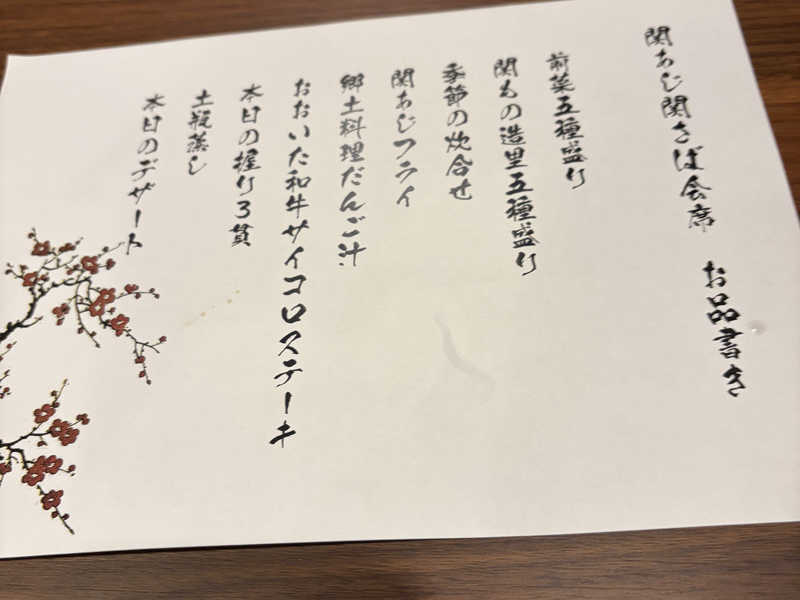 関あじ関さば会席 お品書き
前菜五種盛り
関もの造里五種盛り
季節の炊合せ
関あじフライ
郷土料理だんご汁
おおいた和牛サイコロステーキ
本日の握り3貫
土瓶蒸し
本日のデザート